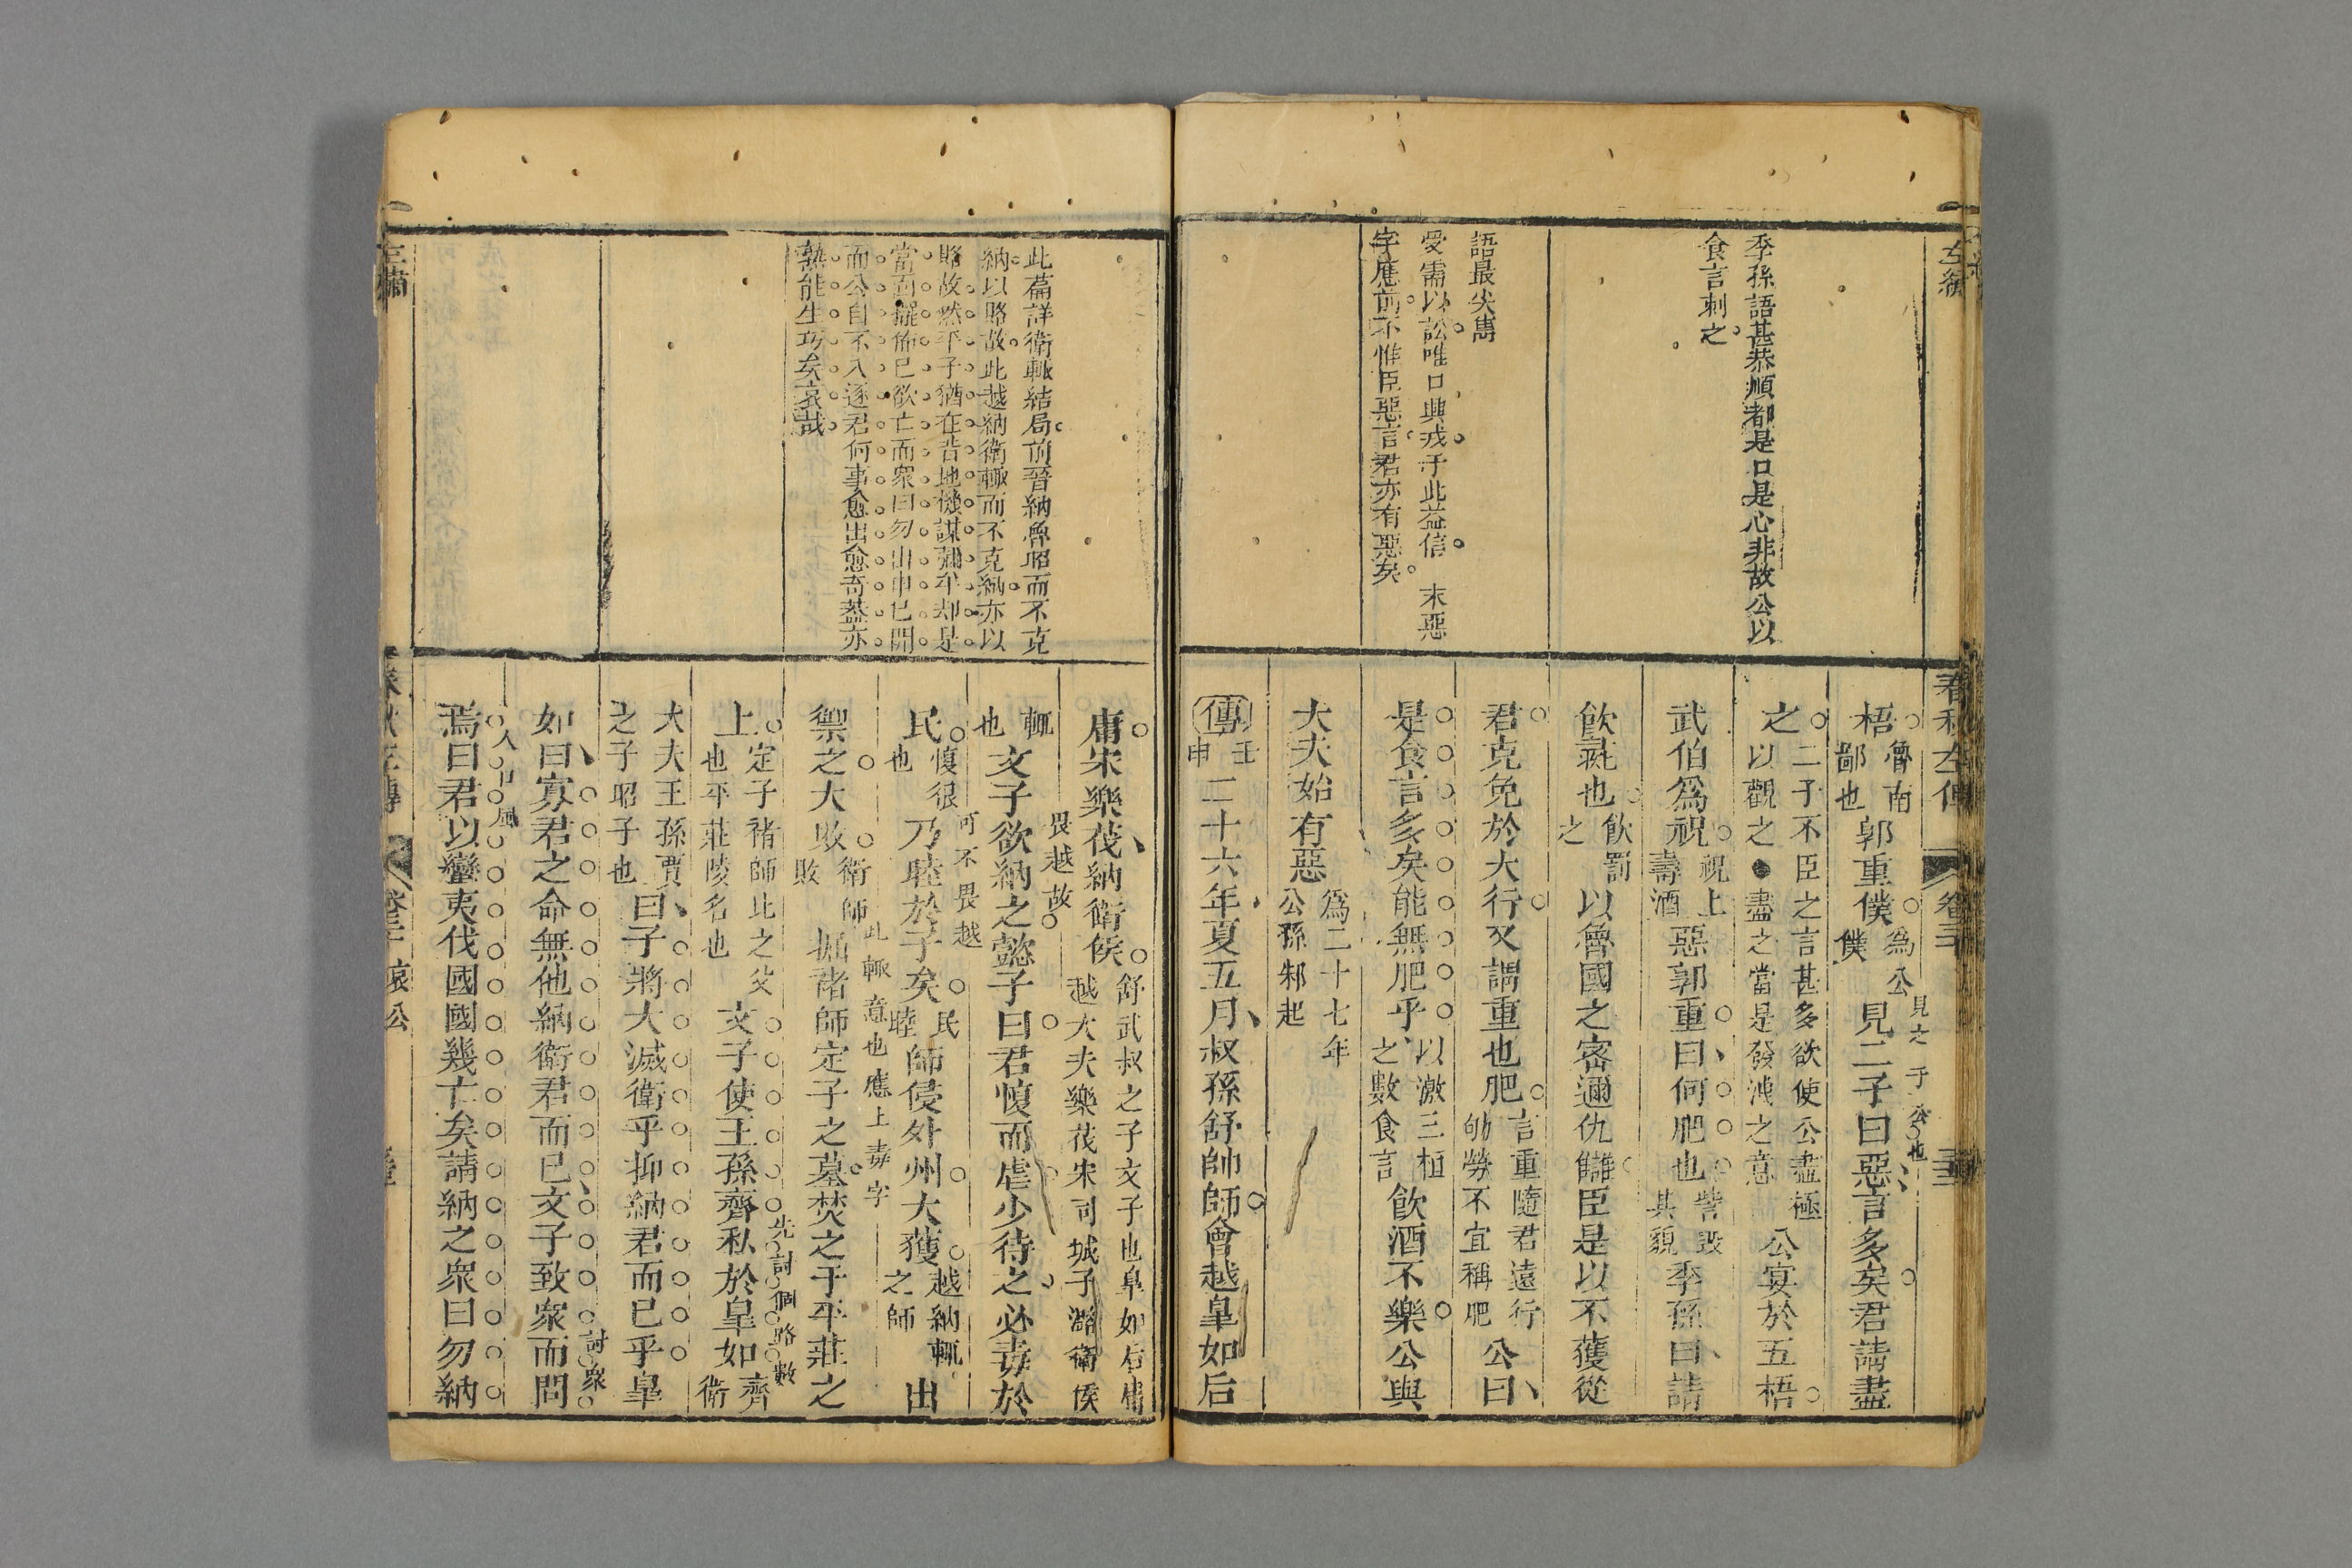 季孫語甚恭順都是口是心非故公以
食言刺之
語最尖雋
受需以訟唯口興戎于此益信 末惡
字應前不惟臣惡言君亦有惡矣
春秋左傳
梧魯南鄙也郭重僕為公僕見二子曰惡言多矣君請盡
見之于公也
之二子不臣之言甚多欲使公盡極以觀之●盡之當是發洩之意公宴於五梧
武伯為祝祝上壽酒惡郭重曰何肥也訾毀其貌季孫曰請
飲彘也飲罰之以魯國之密邇仇讎臣是以不獲從
君克免於大行又謂重也肥言重隨君遠行劬勞不宜稱肥公曰
是食言多矣能無肥乎以激三桓之數食言飲酒不樂公與
大夫始有惡為二十七年公孫邾起
傳壬申二十六年夏五月叔孫舒帥師會越臯如后
此篇詳衛輒結局前晉納魯昭而不克
納以賂故此越納衛輒而不克納亦以
賂故然平子猶在昔地機謀彌牟却是
當面擺佈已欲亡而衆曰勿出申已開
而公自不入逐君何事愈出愈奇葢亦
孰能生巧矣哀哉
庸宋樂茷納衛侯舒武叔之子文子也臯如后庸越大夫樂茷宋司城子潞衛侯
輒也文子欲納之懿子曰君愎而虐少待之必毒於
畏越故
民愎很也乃睦於子矣民睦師侵外州大獲越納輒之師出
可不畏越
禦之大敗衛師敗掘褚師定子之墓焚之于平莊之
此輒意也應上毒字
上定子褚師比之父也平莊陵名也文子使王孫齊私於臯如齊衛
先討個賂數
大夫王孫賈之子昭子也曰子將大滅衛乎抑納君而已乎臯
如曰寡君之命無他納衛君而已文子致衆而問
討衆
焉曰君以蠻夷伐國國幾亡矣請納之衆曰勿納
人口風
哀公